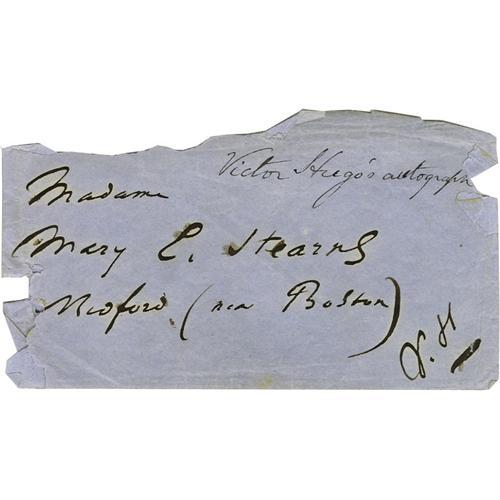 Victor Hugo's autograph
Madame
Mary E. Stearns
Medford (near Boston)
V. H